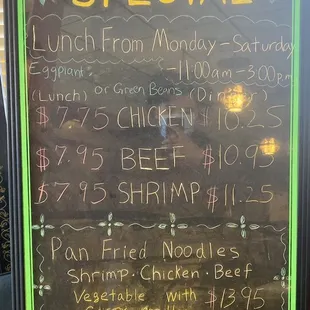 SPECIAL
Lunch From Monday - Saturday
Eggplant - 11:00am - 3:00pm
or Green Beans
(Lunch) (Dinner)
$7.75 CHICKEN $10.25
$7.95 BEEF $10.95
$7.95 SHRIMP $11.25
Pan Fried Noodles
Shrimp · Chicken · Beef
Vegetable with $13.95